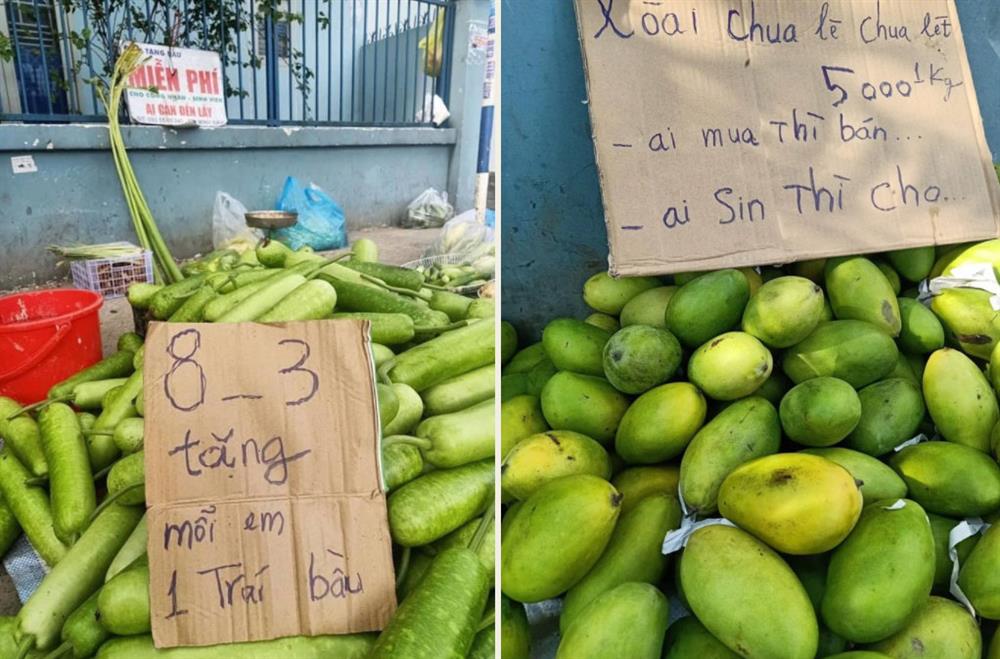 TẶNG BẦU
MIỄN PHÍ
CHO CÔNG NHÂN - SINH VIÊN
AI CẦN ĐẾN LẤY
8_3
tặng
mỗi em
1 Trái bầu
Xoài chua lè chua lét
5000 1Kg
- ai mua Thì bán...
- ai Sin Thì Cho...